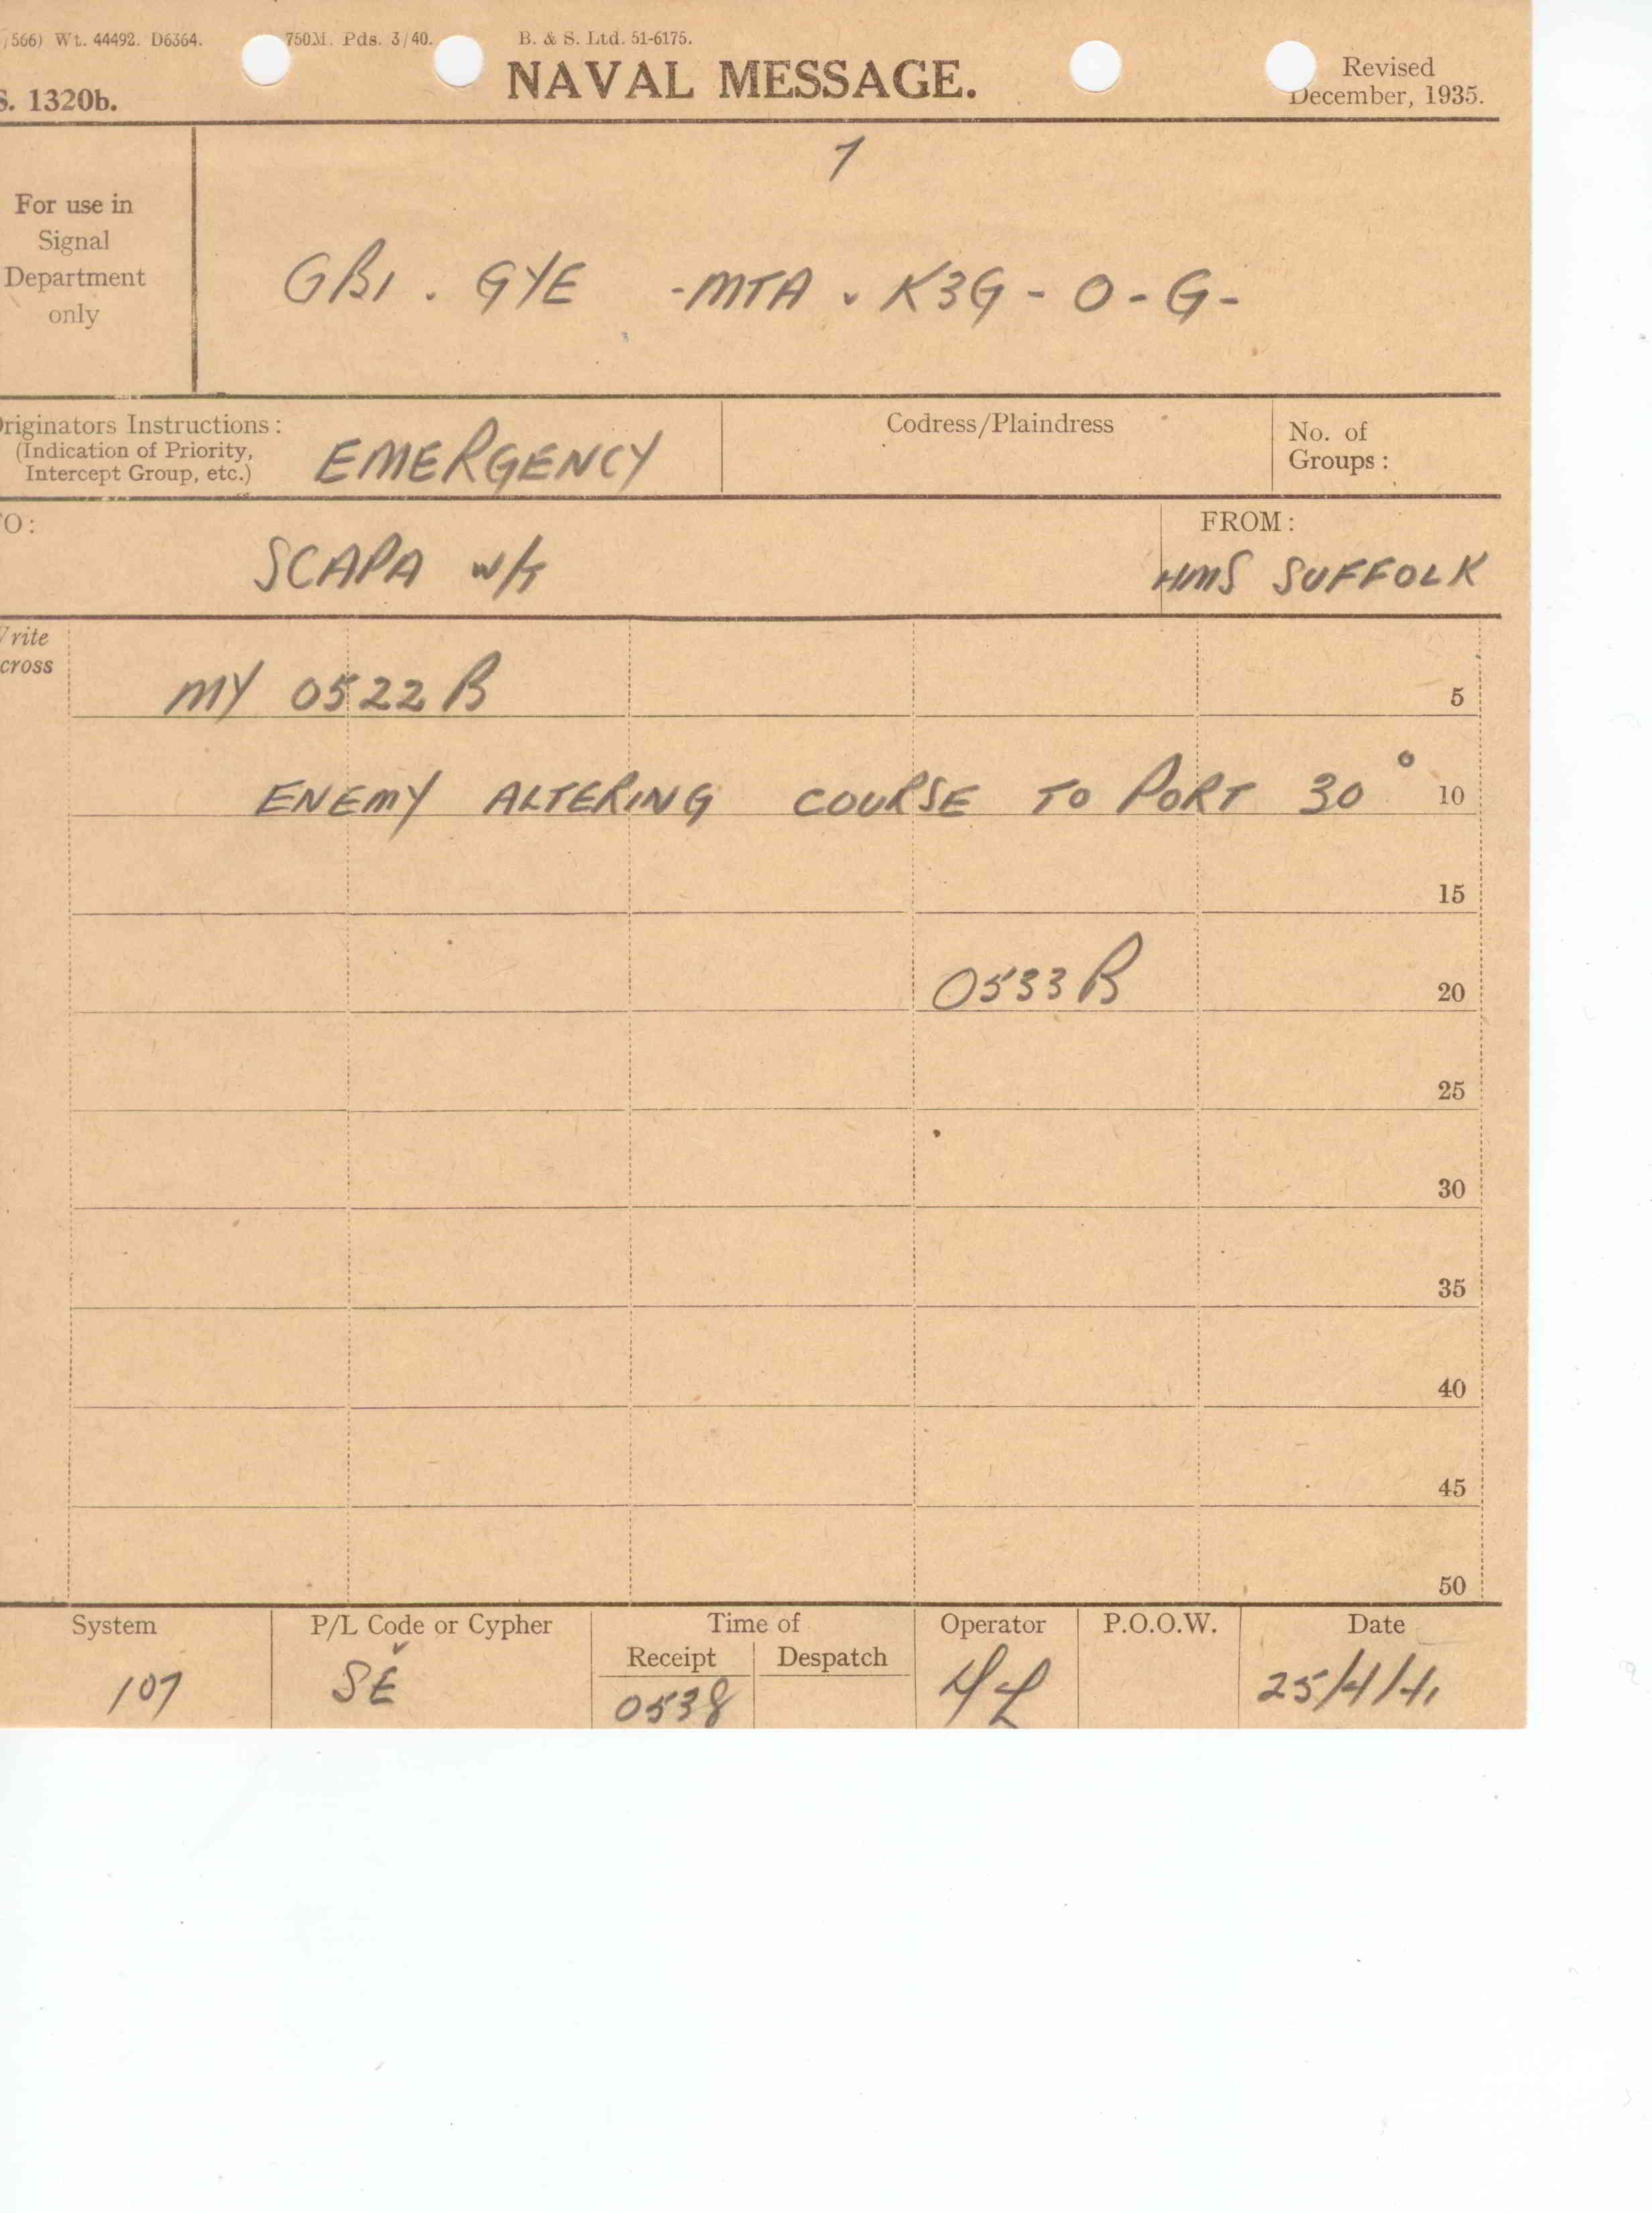 /566) Wt. 44492. D6364. 750M. Pds. 3/40. B. & S. Ltd. 51-6175.
S. 1320b. NAVAL MESSAGE. Revised
December, 1935.
1
For use in
Signal
Department
only
GB1 . GYE - MTA v K3G - O - G -
Originators Instructions:
(Indication of Priority,
Intercept Group, etc.)
EMERGENCY
Codress/Plaindress
No. of
Groups:
TO:
SCAPA W/T
FROM:
HMS SUFFOLK
Write
across
MY 0522 B
5
ENEMY ALTERING COURSE TO PORT 30° 10
15
0533 B
20
25
30
35
40
45
50
System P/L Code or Cypher Time of Operator P.O.O.W. Date
Receipt Despatch
107 SE 0538 25/4/41